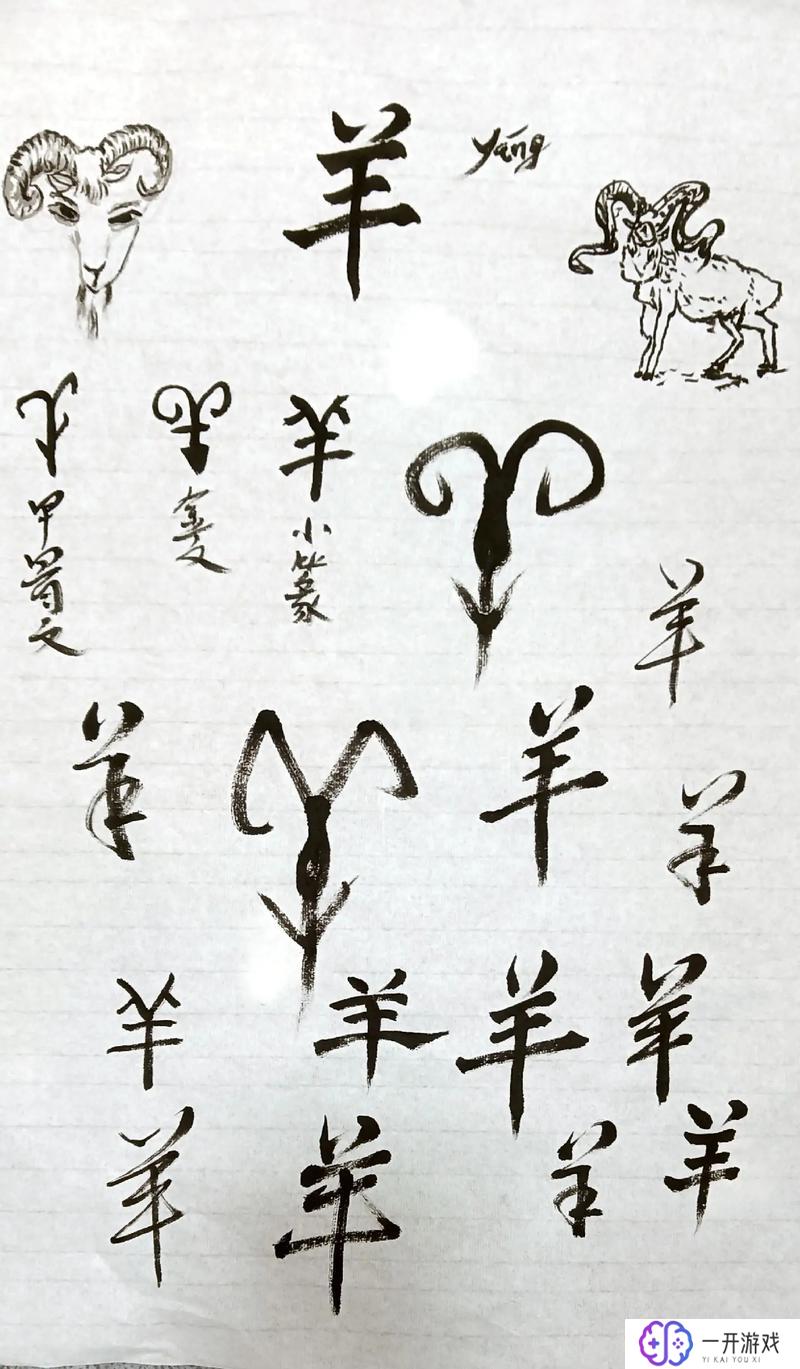 羊 yáng
羊 羊 羊 羊
甲骨文
金文
小篆
羊
羊 羊 羊 羊
羊 羊 羊 羊
羊 羊 羊 羊
一开游戏
YI KAI YOU XI